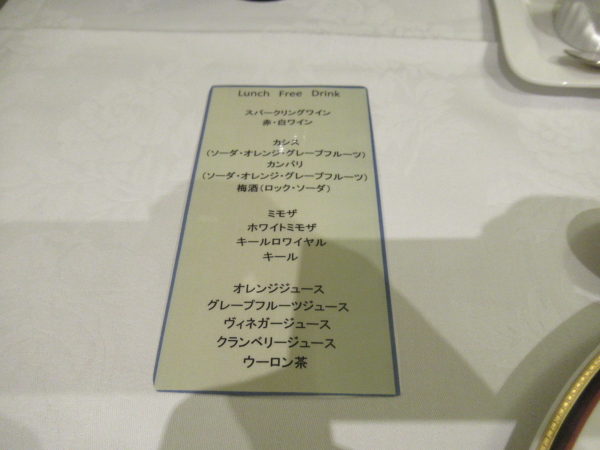 Lunch Free Drink
スパークリングワイン
赤・白ワイン
カシス
(ソーダ・オレンジ・グレープフルーツ)
カンパリ
(ソーダ・オレンジ・グレープフルーツ)
梅酒(ロック・ソーダ)
ミモザ
ホワイトミモザ
キールロワイヤル
キール
オレンジジュース
グレープフルーツジュース
ヴィネガージュース
クランベリージュース
ウーロン茶